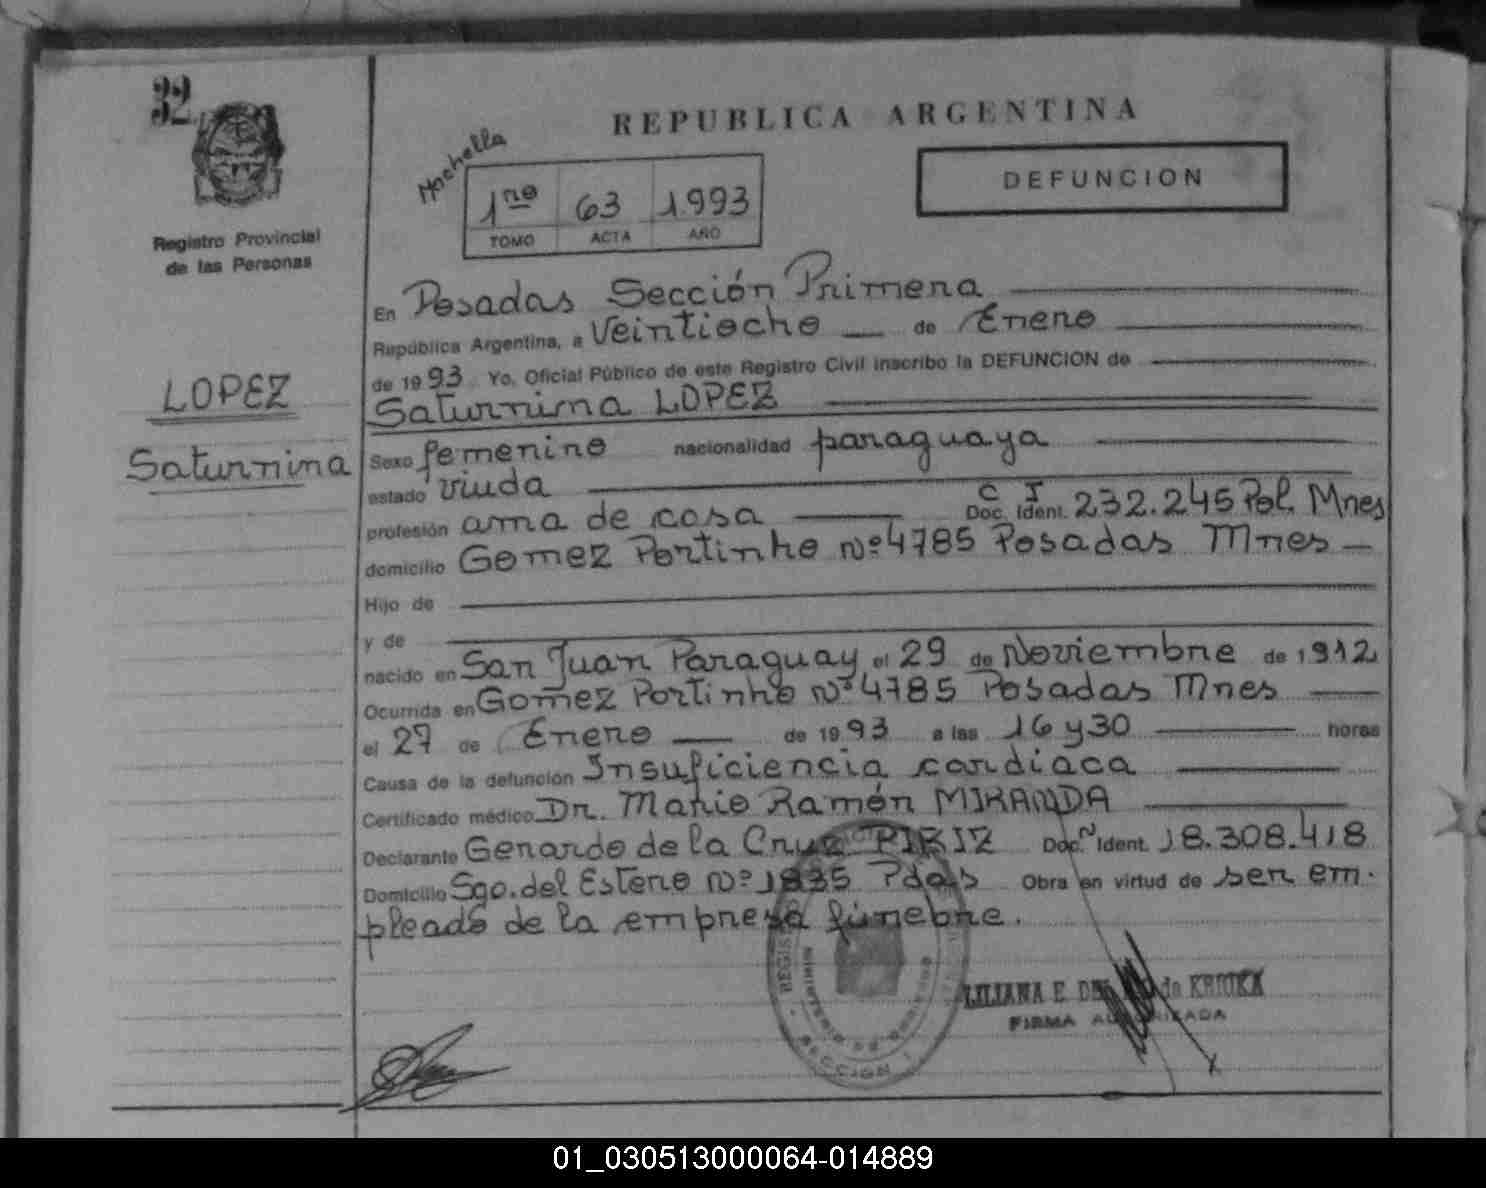 32
REPUBLICA ARGENTINA
Mochella
1ro 63 1993
TOMO ACTA AÑO
DEFUNCION
Registro Provincial
de las Personas
LOPEZ
Saturnina
En Posadas Sección Primera
República Argentina, a Veintiocho de Enero
de 1993 Yo, Oficial Público de este Registro Civil inscribo la DEFUNCION de
Saturnina LOPEZ
Sexo femenino nacionalidad paraguaya
estado viuda
profesión ama de casa C I Doc. Ident. 232.245 Pol. Mnes
domicilio Gomez Portinho Nº 4785 Posadas Mnes
Hijo de
y de
nacido en San Juan Paraguay el 29 de Noviembre de 1912
Ocurrida en Gomez Portinho Nº 4785 Posadas Mnes
el 27 de Enero de 1993 a las 16 y 30 horas
Causa de la defunción Insuficiencia cardiaca
Certificado médico Dr. Mario Ramón MIRANDA
Declarante Gerardo de la Cruz PIRIZ Doc. N Ident. 18.308.418
Domicilio Sgo. del Estero Nº 1835 Pdas Obra en virtud de ser em-
pleado de la empresa fúnebre.
MINISTERIO DE GOBIERNO
SECCION 1
LILIANA E. de KRIUKA
FIRMA AUTORIZADA
01_030513000064-014889